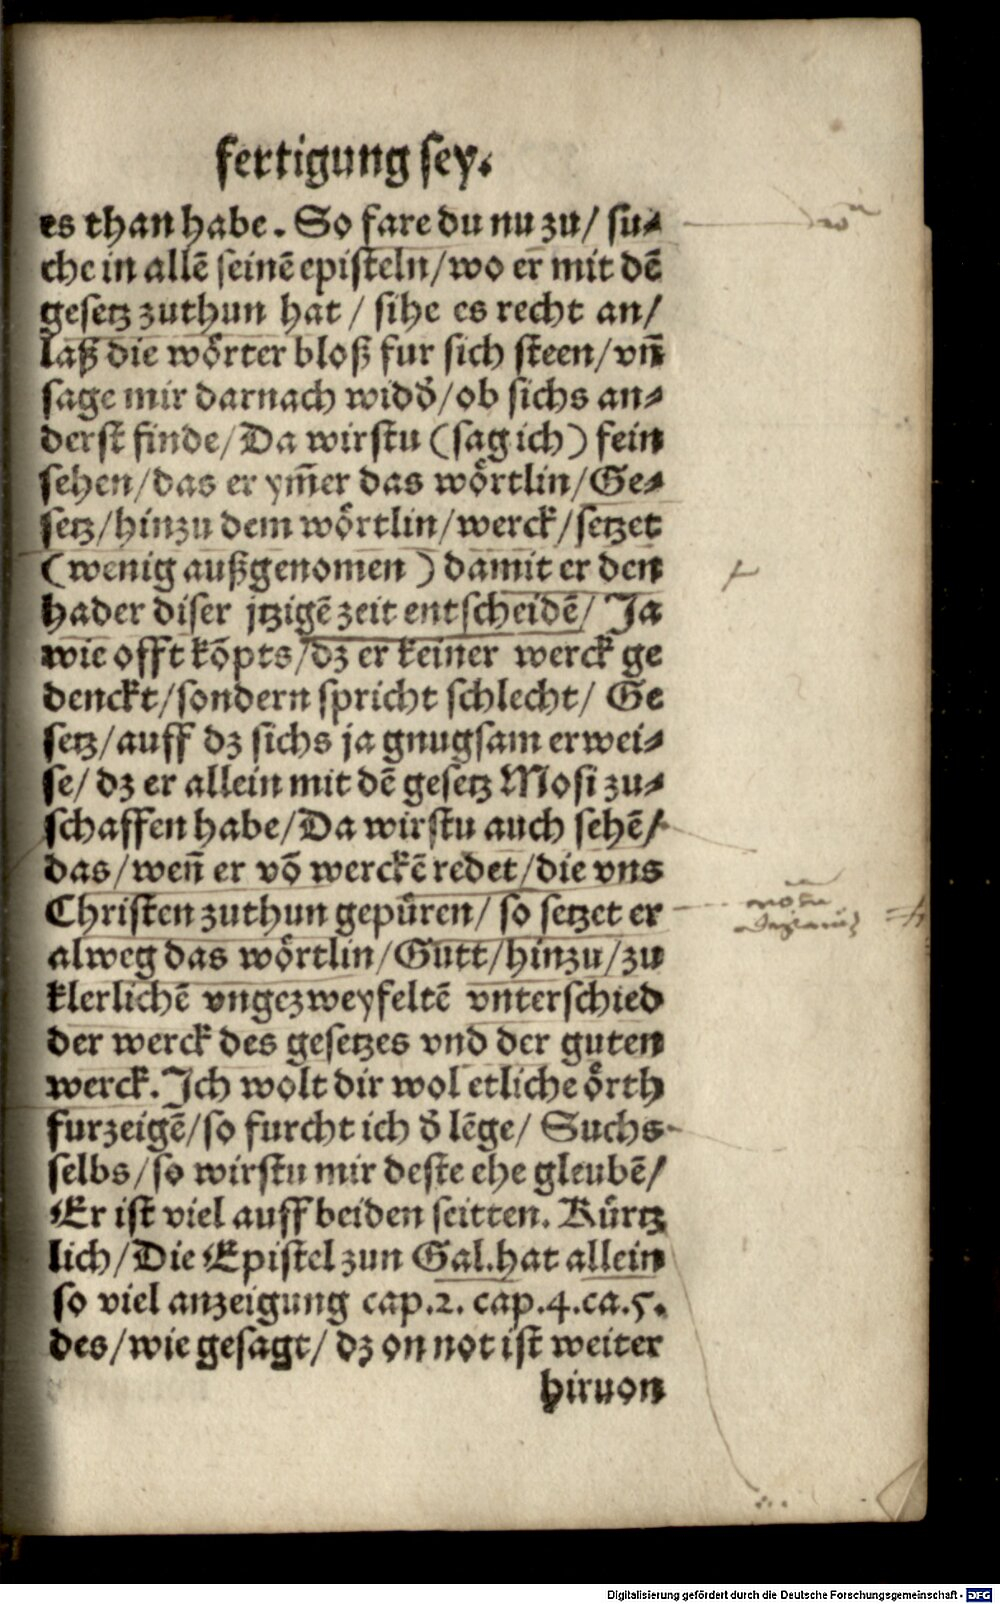 fertigung sey.
es than habe. So fare du nu zu/ su⸗
che in allē seinē episteln/wo er mit dē
gesetz zuthun hat / sihe es recht an/
laß die woͤrter bloß fur sich steen/vn̄
sage mir darnach widd̕/ob sichs an⸗
derst finde/Da wirstu (sag ich) fein
sehen/das er ym̄er das woͤrtlin/Ge⸗
setz/hinzu dem woͤrtlin/werck/setzet
(wenig außgenomen) damit er den
hader diser jtzigē zeit entscheidē/ Ja
wie offt koͤpts/dz er keiner werck ge
denckt/sondern spricht schlecht/ Ge
setz/auff dz sichs ja gnugsam erwei⸗
se/ dz er allein mit dē gesetz Mosi zu⸗
schaffen habe/Da wirstu auch sehē/
das/wen̄ er vō werckē redet/die vns
Christen zuthun gepuͤren/ so setzet er
alweg das woͤrtlin/Gutt/hinzu/zu
klerlichē vngezweyfeltē vnterschied
der werck des gesetzes vnd der guten
werck. Ich wolt dir wol etliche oͤrth
furzeigē/so furcht ich d̕ lēge/ Suchs
selbs/so wirstu mir deste ehe gleubē/
Er ist viel auff beiden seitten. Kuͤrtz
lich/Die Epistel zun Gal.hat allein
so viel anzeigung cap.2. cap.4.ca.5.
des/wie gesagt/ dz on not ist weiter
hiruon
Digitalisierung gefördert durch die Deutsche Forschungsgemeinschaft - DFG